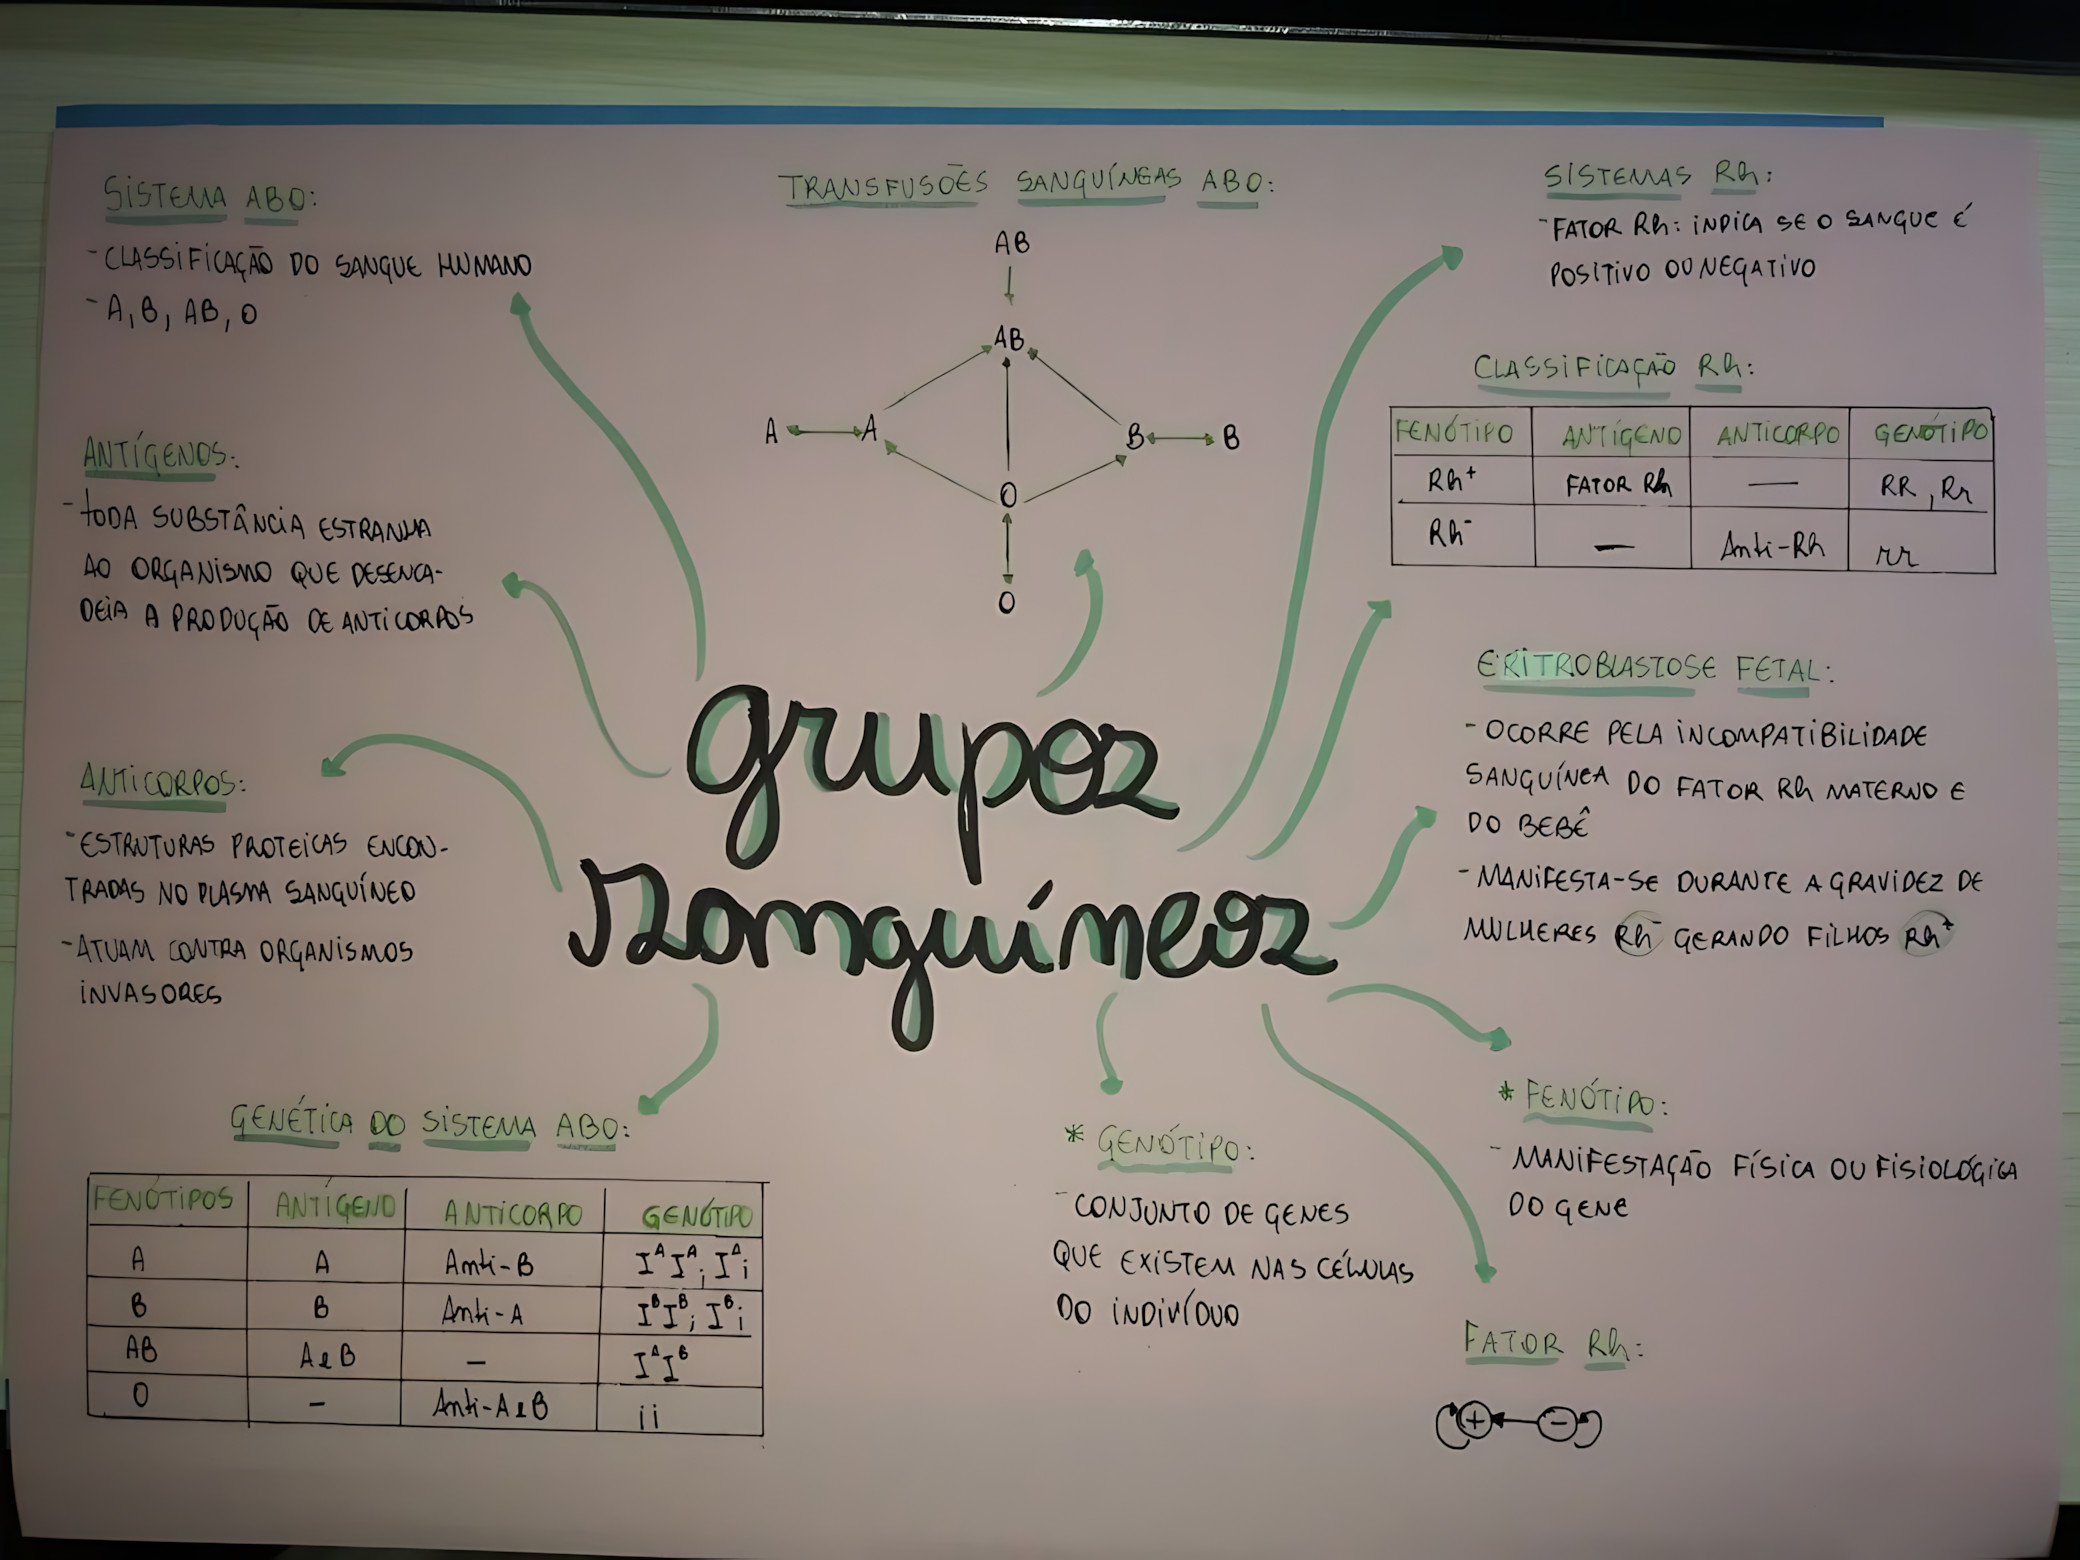 SISTEMA ABO:
- CLASSIFICAÇÃO DO SANGUE HUMANO
- A, B, AB, O
ANTÍGENOS:
- TODA SUBSTÂNCIA ESTRANHA
AO ORGANISMO QUE DESENCA-
DEIA A PRODUÇÃO DE ANTICORPOS
ANTICORPOS:
- ESTRUTURAS PROTEICAS ENCON-
TRADAS NO PLASMA SANGUÍNEO
- ATUAM CONTRA ORGANISMOS
INVASORES
GENÉTICA DO SISTEMA ABO:
FENÓTIPOS ANTÍGENO ANTICORPO GENÓTIPO
A A Anti-B IᴬIᴬ; Iᴬi
B B Anti-A IᴮIᴮ; Iᴮi
AB A e B - IᴬIᴮ
O - Anti-A e B ii
TRANSFUSÕES SANGUÍNEAS ABO:
AB
AB
A A B B
O
O
grupos
sanguíneos
* GENÓTIPO:
- CONJUNTO DE GENES
QUE EXISTEM NAS CÉLULAS
DO INDIVÍDUO
SISTEMAS Rh:
- FATOR Rh: INDICA SE O SANGUE É
POSITIVO OU NEGATIVO
CLASSIFICAÇÃO Rh:
FENÓTIPO ANTÍGENO ANTICORPO GENÓTIPO
Rh⁺ FATOR Rh — RR, Rr
Rh⁻ — Anti-Rh rr
ERITROBLASTOSE FETAL:
- OCORRE PELA INCOMPATIBILIDADE
SANGUÍNEA DO FATOR Rh MATERNO E
DO BEBÊ
- MANIFESTA-SE DURANTE A GRAVIDEZ DE
MULHERES Rh⁻ GERANDO FILHOS Rh⁺
* FENÓTIPO:
- MANIFESTAÇÃO FÍSICA OU FISIOLÓGICA
DO GENE
FATOR Rh:
+ -